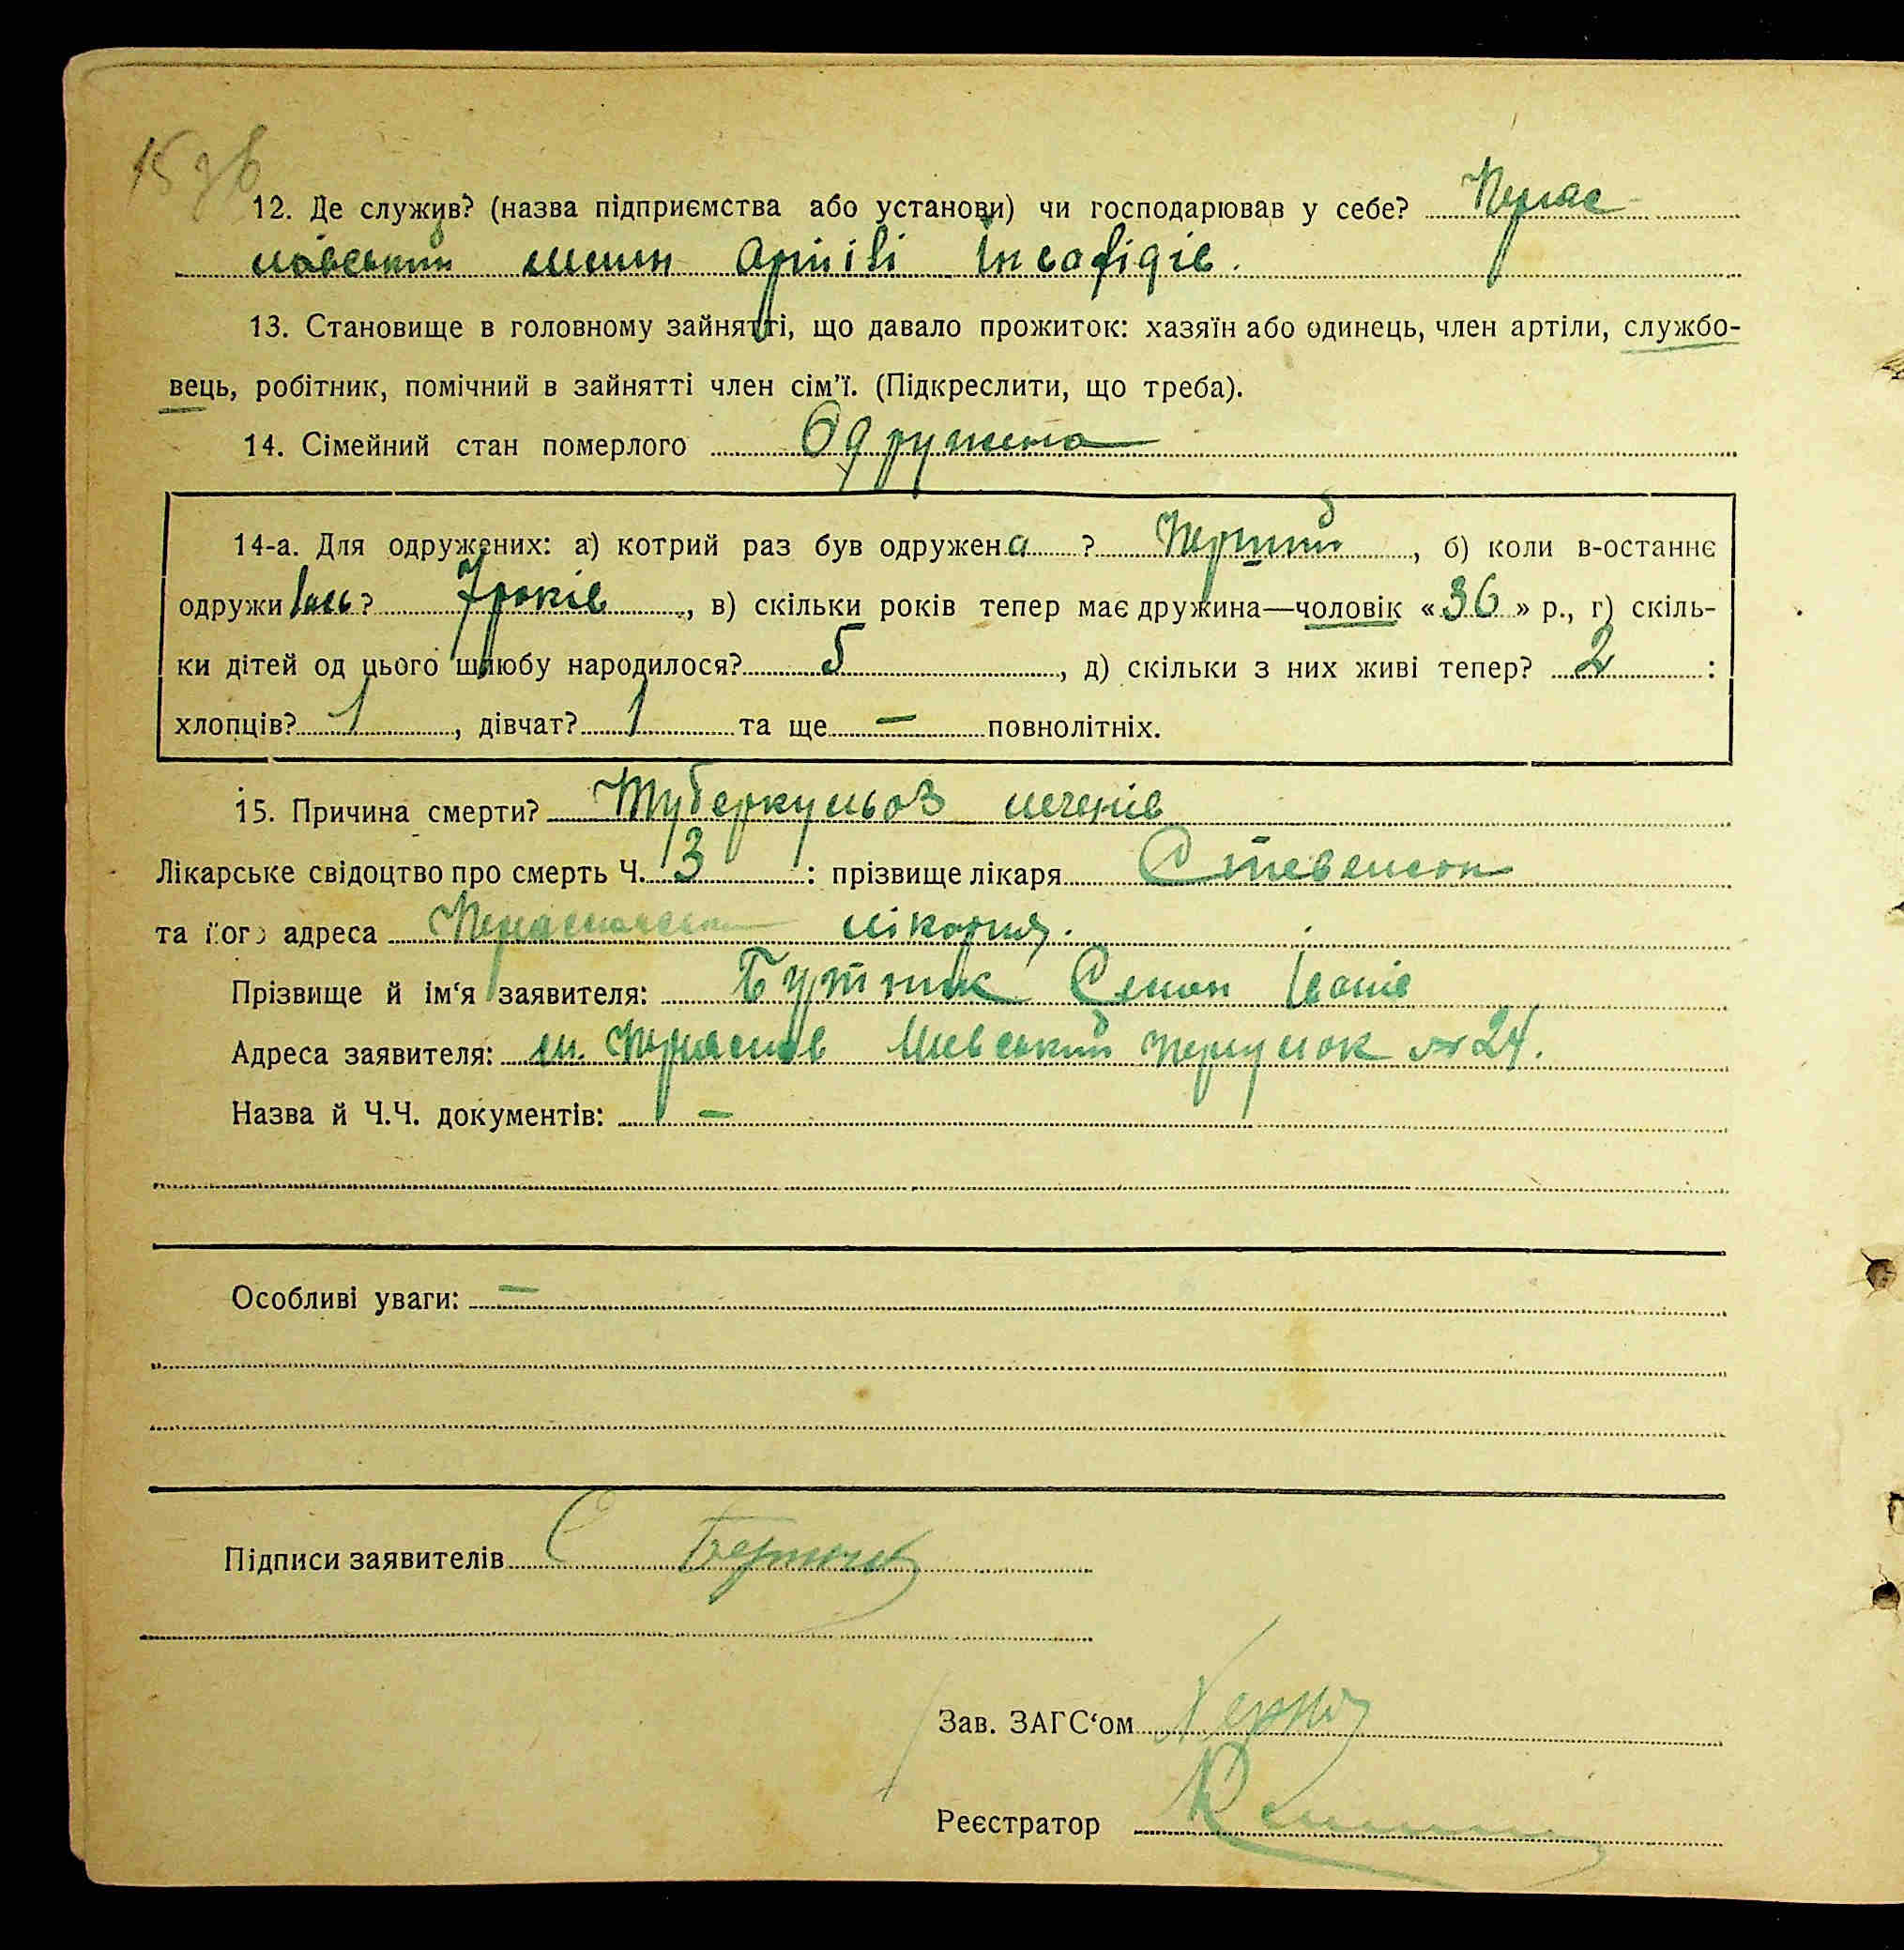 15 зв
12. Де служив? (назва підприємства або установи) чи господарював у себе? Переяс-
лавський млин Артілі Інвалідів.
13. Становище в головному зайнятті, що давало прожиток: хазяїн або одинець, член артіли, службо-
вець, робітник, помічний в зайнятті член сім'ї. (Підкреслити, що треба).
14. Сімейний стан померлого Одружена
14-а. Для одружених: а) котрий раз був одружена ? Перший, б) коли в-останнє
одружилась? 7 років, в) скільки років тепер має дружина—чоловік «36» р., г) скіль-
ки дітей од цього шлюбу народилося? 5, д) скільки з них живі тепер? 2 :
хлопців? 1, дівчат? 1 та ще — повнолітніх.
15. Причина смерти? Туберкульоз легенів
Лікарське свідоцтво про смерть Ч. 3 : прізвище лікаря
та його адреса лікарня.
Прізвище й ім'я заявителя: Бутник Семен Іванів
Адреса заявителя: м. Переяслав переулок № 24.
Назва й Ч.Ч. документів: —
Особливі уваги: —
Підписи заявителів С
Зав. ЗАГС'ом
Реєстратор